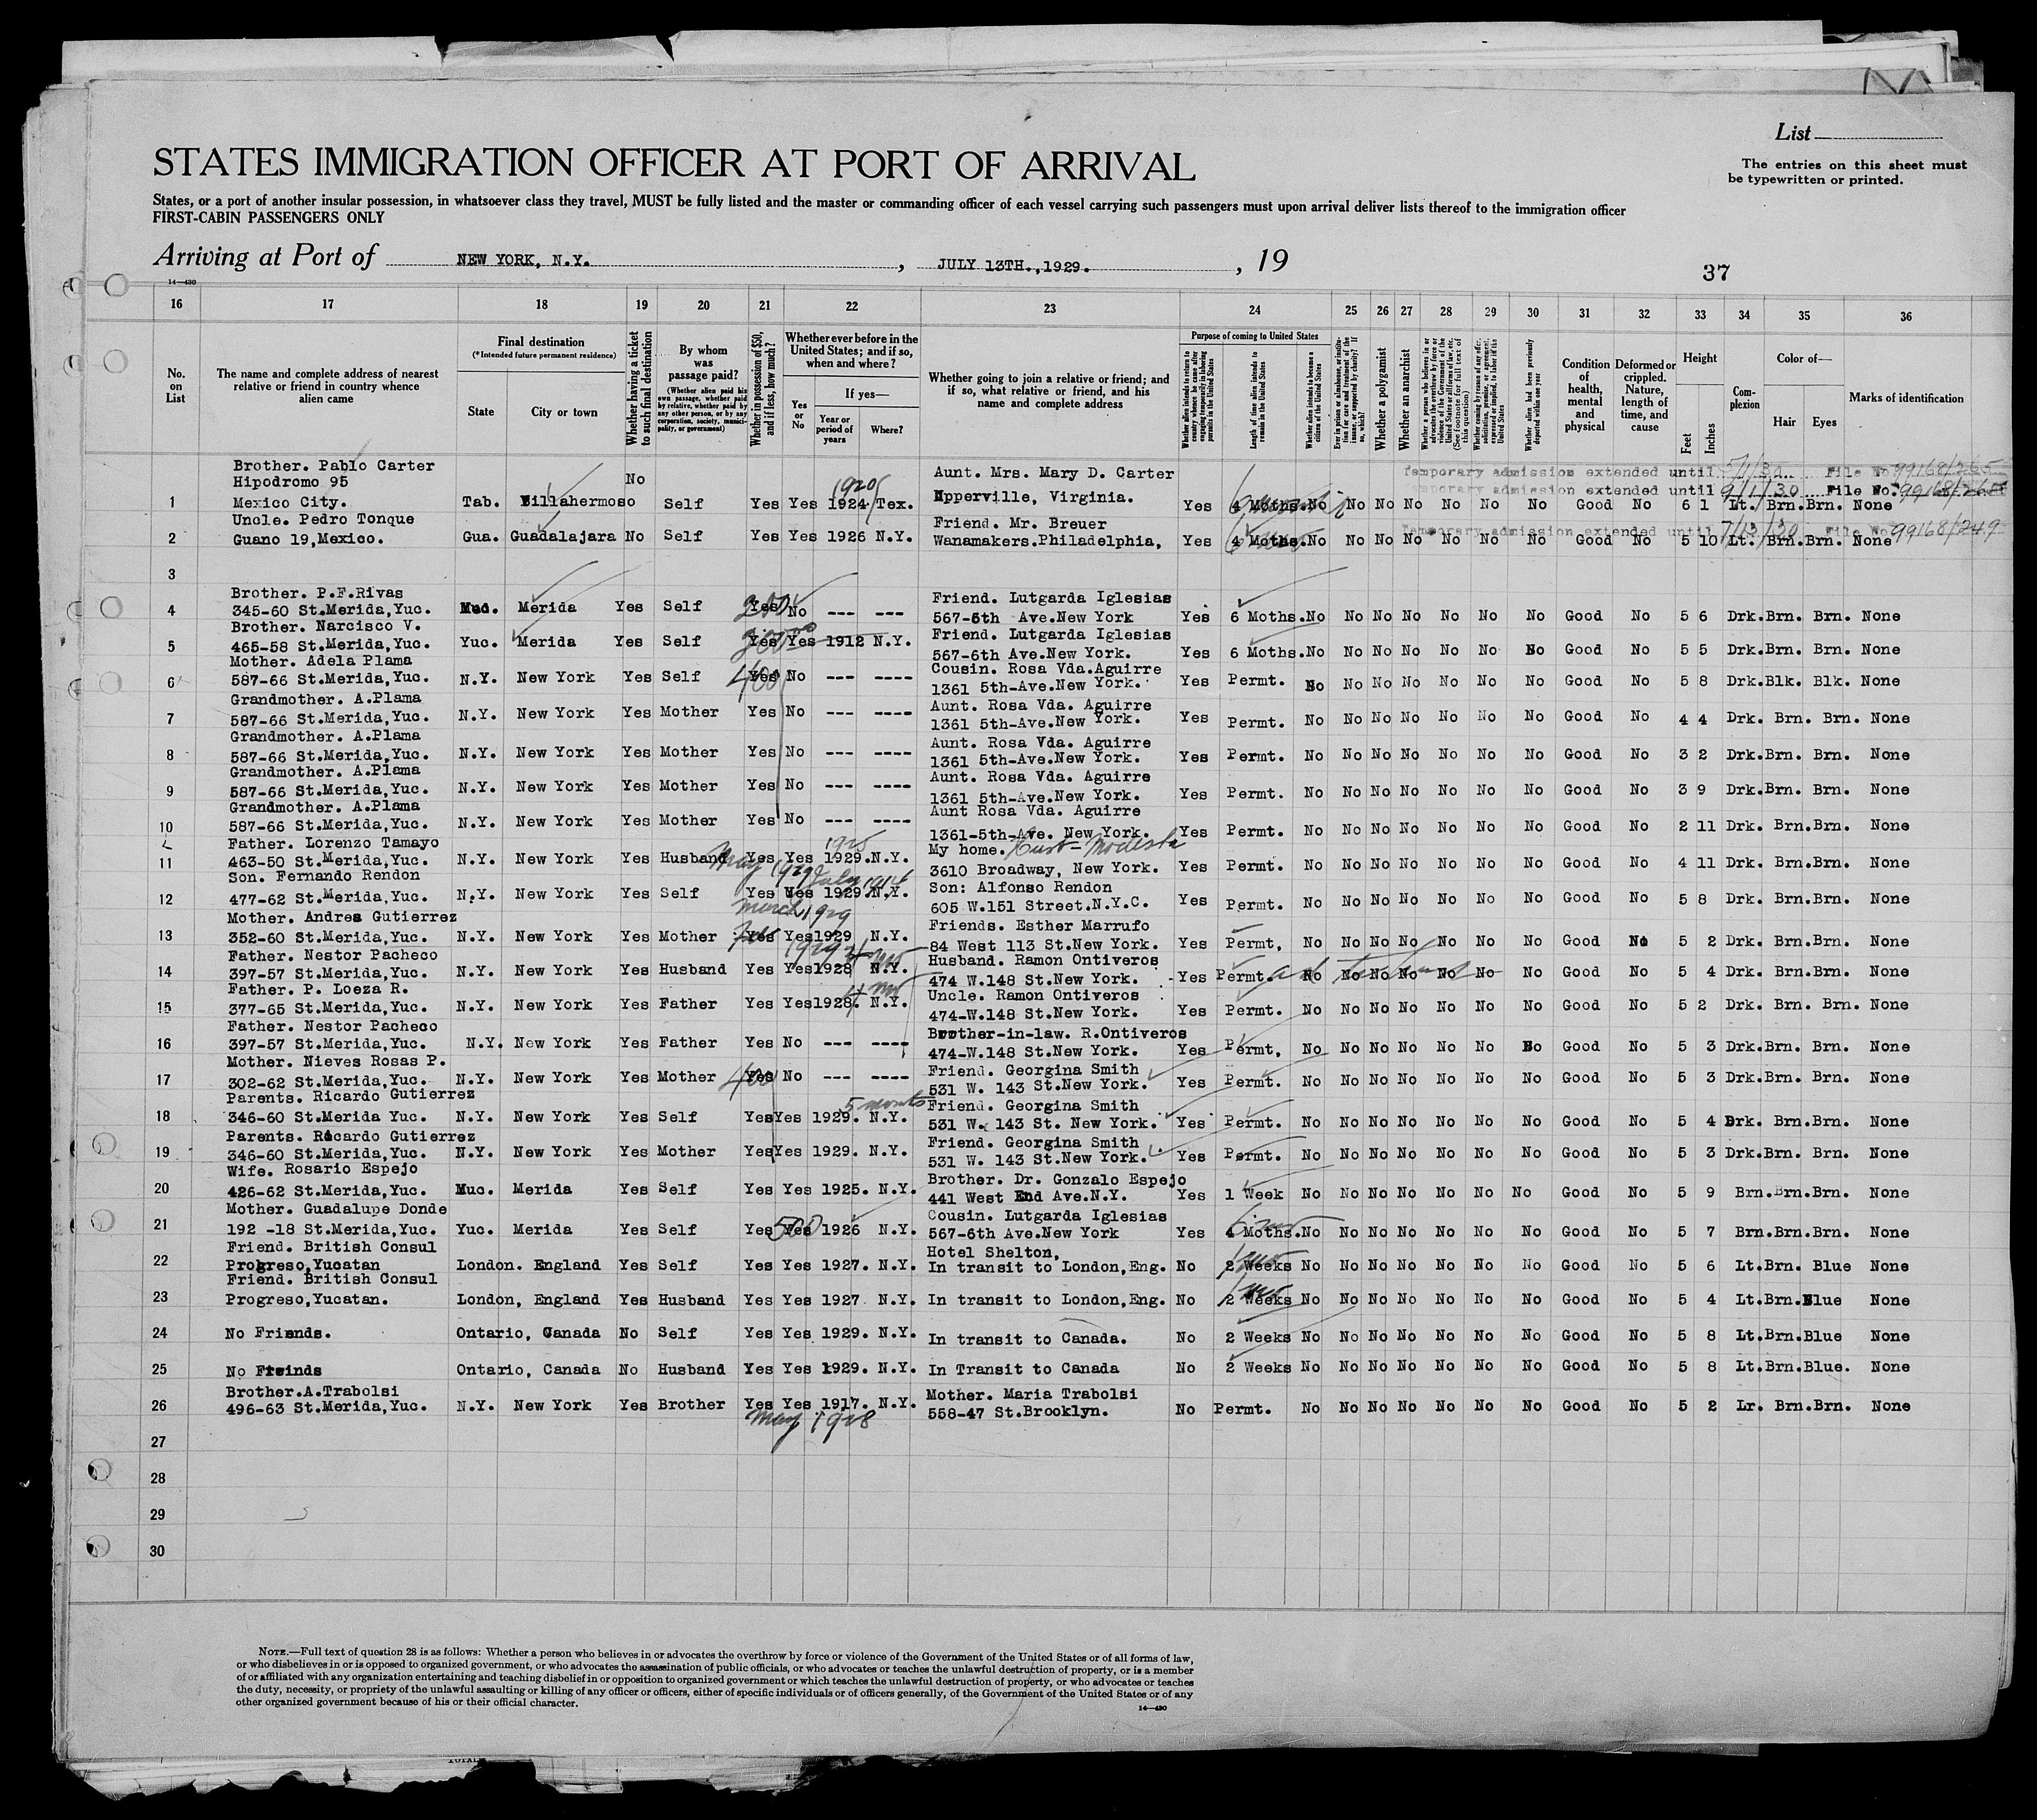 List
The entries on this sheet must
be typewritten or printed.
STATES IMMIGRATION OFFICER AT PORT OF ARRIVAL
States, or a port of another insular possession, in whatsoever class they travel, MUST be fully listed and the master or commanding officer of each vessel carrying such passengers must upon arrival deliver lists thereof to the immigration officer
FIRST-CABIN PASSENGERS ONLY
Arriving at Port of NEW YORK, N.Y. , JULY 13TH.,1929. , 19
37
14—430
16 17 18 19 20 21 22 23 24 25 26 27 28 29 30 31 32 33 34 35 36
No. on List
The name and complete address of nearest relative or friend in country whence alien came
Final destination
(*Intended future permanent residence)
State City or town
Whether having a ticket to such final destination
By whom was passage paid?
(Whether alien paid his own passage, whether paid by relative, whether paid by any other person, or by any corporation, society, municipality, or government)
Whether in possession of $50, and if less, how much?
Whether ever before in the United States; and if so, when and where?
Yes or No
If yes—
Year or period of years
Where?
Whether going to join a relative or friend; and if so, what relative or friend, and his name and complete address
Purpose of coming to United States
Whether alien intends to return to country whence he came after engaging temporarily in laboring pursuits in the United States
Length of time alien intends to remain in the United States
Whether alien intends to become a citizen of the United States
Whether a polygamist
Whether an anarchist
Condition of health, mental and physical
Deformed or crippled. Nature, length of time, and cause
Height
Feet Inches
Complexion
Color of—
Hair Eyes
Marks of identification
Brother. Pablo Carter Aunt. Mrs. Mary D. Carter Temporary admission extended until 5/1/30 File No 99168/265
Hipodromo 95 No 1920 Temporary admission extended until 9/1/30 File No. 99168/265
1 Mexico City. Tab. Villahermoso Self Yes Yes 1924 Tex. Upperville, Virginia. Yes 4 Moths. No No No No No No No Good No 6 1 Lt. Brn. Brn. None
Uncle. Pedro Tonque Friend. Mr. Breuer Temporary admission extended until 7/13/30 File No 99168/249
2 Guano 19,Mexico. Gua. Guadalajara No Self Yes Yes 1926 N.Y. Wanamakers.Philadelphia, Yes 4 Moths. No No No No No No No Good No 5 10 Lt. Brn. Brn. None
3
Brother. P.F.Rivas Friend. Lutgarda Iglesias
4 345-60 St.Merida,Yuc. Yuc. Merida Yes Self Yes 200 No --- --- 567-6th Ave.New York Yes 6 Moths. No No No No No No No Good No 5 6 Drk. Brn. Brn. None
Brother. Narcisco V. Friend. Lutgarda Iglesias
5 465-58 St.Merida,Yuc. Yuc. Merida Yes Self Yes 300 Yes 1912 N.Y. 567-6th Ave.New York. Yes 6 Moths. No No No No No No No Good No 5 5 Drk. Brn. Brn. None
Mother. Adela Plama Cousin. Rosa Vda.Aguirre
6 587-66 St.Merida,Yuc. N.Y. New York Yes Self Yes 400 No --- ---- 1361 5th-Ave.New York. Yes Permt. No No No No No No No Good No 5 8 Drk. Blk. Blk. None
Grandmother. A.Plama Aunt. Rosa Vda. Aguirre
7 587-66 St.Merida,Yuc. N.Y. New York Yes Mother Yes No --- ---- 1361 5th-Ave.New York. Yes Permt. No No No No No No No Good No 4 4 Drk. Brn. Brn. None
Grandmother. A.Plama Aunt. Rosa Vda. Aguirre
8 587-66 St.Merida,Yuc. N.Y. New York Yes Mother Yes No --- ---- 1361 5th-Ave.New York. Yes Permt. No No No No No No No Good No 3 2 Drk. Brn. Brn. None
Grandmother. A.Plama Aunt. Rosa Vda. Aguirre
9 587-66 St.Merida,Yuc. N.Y. New York Yes Mother Yes No --- ---- 1361 5th-Ave.New York. Yes Permt. No No No No No No No Good No 3 9 Drk. Brn. Brn. None
Grandmother. A.Plama Aunt Rosa Vda. Aguirre
10 587-66 St.Merida,Yuc. N.Y. New York Yes Mother Yes No --- ---- 1361-5th-Ave. New York. Yes Permt. No No No No No No No Good No 2 11 Drk. Brn. Brn. None
Father. Lorenzo Tamayo 1928 My home. Husb- Modesto
11 463-50 St.Merida,Yuc. N.Y. New York Yes Husband Yes Yes 1929.N.Y. 3610 Broadway, New York. Yes Permt. No No No No No No No Good No 4 11 Drk. Brn. Brn. None
Son. Fernando Rendon May 1929 July 1914 Son: Alfonso Rendon
12 477-62 St.Merida,Yuc. N.Y. New York Yes Self Yes Yes 1929.N.Y. 605 W.151 Street.N.Y.C. Yes Permt. No No No No No No No Good No 5 8 Drk. Brn. Brn. None
Mother. Andrea Gutierrez March 1929 Friends. Esther Marrufo
13 352-60 St.Merida,Yuc. N.Y. New York Yes Mother Yes Yes 1929 N.Y. 84 West 113 St.New York. Yes Permt, No No No No No No No Good No 5 2 Drk. Brn. Brn. None
Father. Nestor Pacheco 1929 4 mo Husband. Ramon Ontiveros
14 397-57 St.Merida,Yuc. N.Y. New York Yes Husband Yes Yes 1928 N.Y. 474 W.148 St.New York. Yes Permt. No No No No No No No Good No 5 4 Drk. Brn. Brn. None
Father. P. Loeza R. 4 mo Uncle. Ramon Ontiveros
15 377-65 St.Merida,Yuc. N.Y. New York Yes Father Yes Yes 1928. N.Y. 474-W.148 St.New York. Yes Permt. No No No No No No No Good No 5 2 Drk. Brn. Brn. None
Father. Nestor Pacheco Brother-in-law. R.Ontiveros
16 397-57 St.Merida,Yuc. N.Y. New York Yes Father Yes No --- ---- 474-W.148 St.New York. Yes Permt, No No No No No No No Good No 5 3 Drk. Brn. Brn. None
Mother. Nieves Rosas P. Friend. Georgina Smith
17 302-62 St.Merida,Yuc. N.Y. New York Yes Mother Yes 400 No --- ---- 531 W. 143 St.New York. Yes Permt. No No No No No No No Good No 5 3 Drk. Brn. Brn. None
Parents. Ricardo Gutierrez 5 months Friend. Georgina Smith
18 346-60 St.Merida Yuc. N.Y. New York Yes Self Yes Yes 1929. N.Y. 531 W. 143 St. New York. Yes Permt. No No No No No No No Good No 5 4 Drk. Brn. Brn. None
Parents. Ricardo Gutierrez Friend. Georgina Smith
19 346-60 St.Merida,Yuc. N.Y. New York Yes Mother Yes Yes 1929. N.Y. 531 W. 143 St.New York. Yes Permt. No No No No No No No Good No 5 3 Drk. Brn. Brn. None
Wife. Rosario Espejo Brother. Dr. Gonzalo Espejo
20 426-62 St.Merida,Yuc. Yuc. Merida Yes Self Yes Yes 1925. N.Y. 441 West End Ave.N.Y. Yes 1 Week No No No No No No No Good No 5 9 Brn. Brn. Brn. None
Mother. Guadalupe Donde Cousin. Lutgarda Iglesias
21 192 -18 St.Merida,Yuc. Yuc. Merida Yes Self Yes 500 Yes 1926 N.Y. 567-6th Ave.New York Yes 4 Moths. 6 mo No No No No No No No Good No 5 7 Brn. Brn. Brn. None
Friend. British Consul Hotel Shelton,
22 Progreso,Yucatan London. England Yes Self Yes Yes 1927. N.Y. In transit to London,Eng. No 2 Weeks 1 mo No No No No No No No Good No 5 6 Lt. Brn. Blue None
Friend. British Consul
23 Progreso,Yucatan. London, England Yes Husband Yes Yes 1927 N.Y. In transit to London,Eng. No 2 Weeks 1 mo No No No No No No No Good No 5 4 Lt. Brn. Blue None
24 No Friends. Ontario, Canada No Self Yes Yes 1929. N.Y. In transit to Canada. No 2 Weeks No No No No No No No Good No 5 8 Lt. Brn. Blue None
25 No Freinds Ontario, Canada No Husband Yes Yes 1929. N.Y. In Transit to Canada No 2 Weeks No No No No No No No Good No 5 8 Lt. Brn. Blue. None
Brother.A.Trabolsi Mother. Maria Trabolsi
26 496-63 St.Merida,Yuc. N.Y. New York Yes Brother Yes Yes 1917. N.Y. 558-47 St.Brooklyn. No Permt. No No No No No No No Good No 5 2 Lr. Brn. Brn. None
May 1928
27
28
29
30
NOTE.—Full text of question 28 is as follows: Whether a person who believes in or advocates the overthrow by force or violence of the Government of the United States or of all forms of law,
or who disbelieves in or is opposed to organized government, or who advocates the assassination of public officials, or who advocates or teaches the unlawful destruction of property, or is a member
of or affiliated with any organization entertaining and teaching disbelief in or opposition to organized government or which teaches the unlawful destruction of property, or who advocates or teaches
the duty, necessity, or propriety of the unlawful assaulting or killing of any officer or officers, either of specific individuals or of officers generally, of the Government of the United States or of any
other organized government because of his or their official character.
14—430